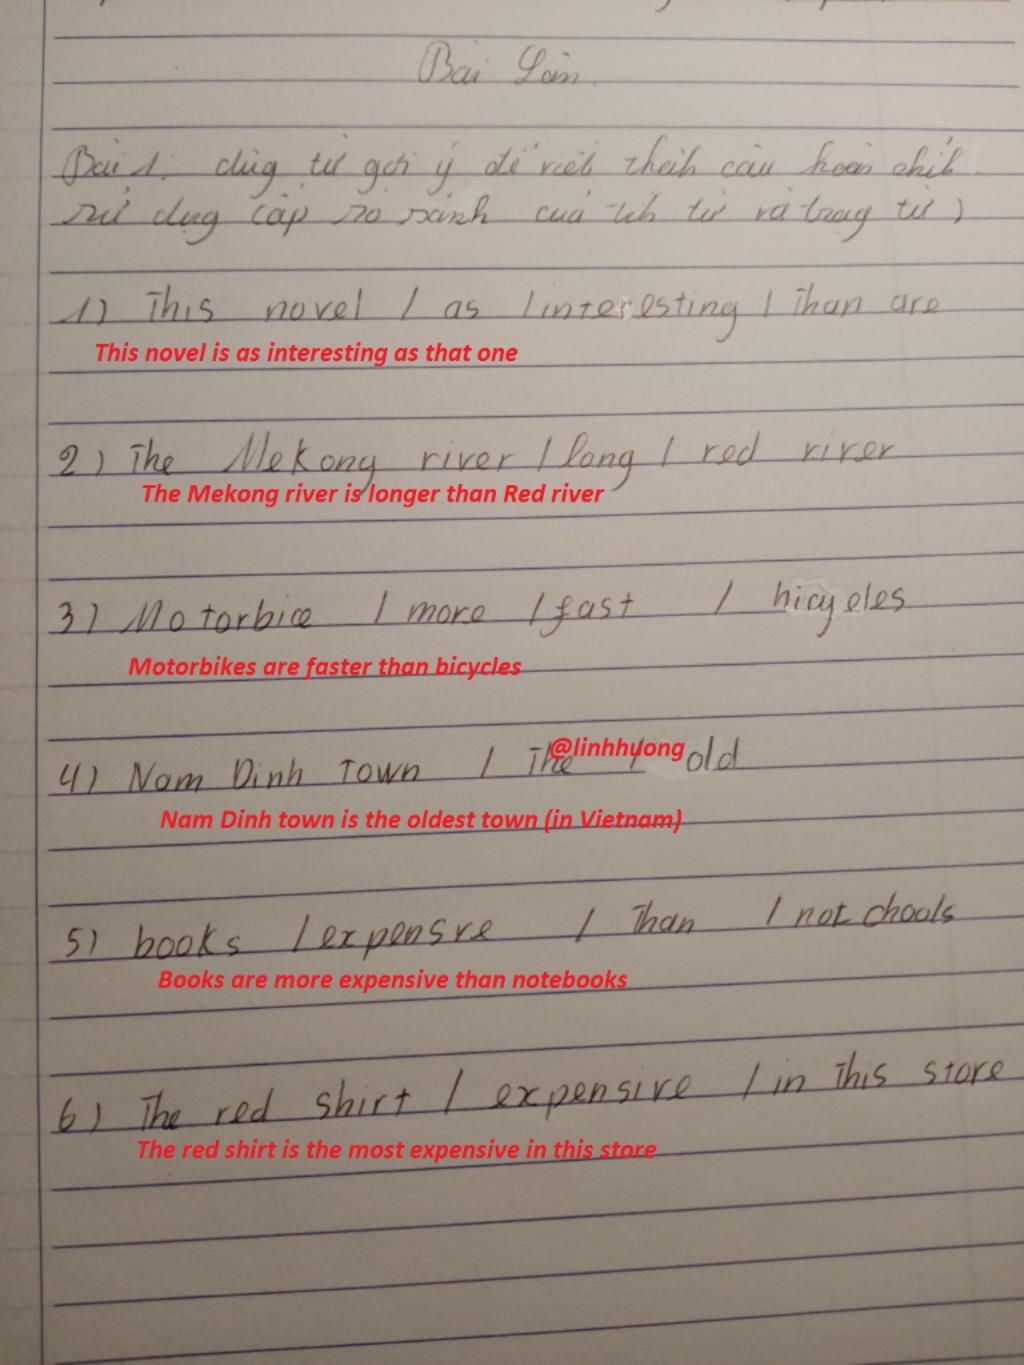 Bài Làm.
Bài 1: dùg từ gợi ý để viết thàh câu hoàn chỉh
sử dụg cấp so sánh của tíh từ và trạg từ )
1) This novel / as / interesting / Than are
This novel is as interesting as that one
2) The Mekong river / long / red river
The Mekong river is longer than Red river
3) Motorbice / more / fast / bicyeles
Motorbikes are faster than bicycles
4) Nam Dinh Town / The / old
@linhhuong
Nam Dinh town is the oldest town (in Vietnam)
5) books / expensve / Than / not chools
Books are more expensive than notebooks
6) The red shirt / expensive / in This store
The red shirt is the most expensive in this store